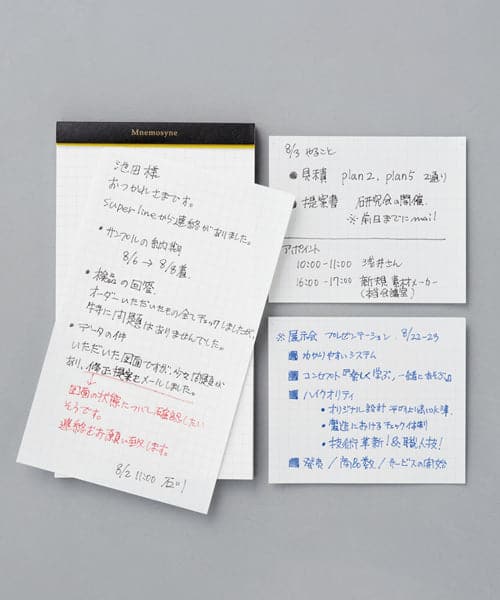 Mnemosyne
池田様
おつかれさまです。
super lineから連絡がありました。
・サンプルの納期
8/6 → 8/8着
・検品の回答
オーダーいただいたもの全てチェックしましたが、
特に問題はありませんでした。
・データの件
いただいた図面ですが、少々問題が
あり、修正提案をメールしました。
図面の状態について確認したい
そうです。
連絡をお願い致します。
8/2 11:00 石川
8/3 やること
見積 plan2、plan5 2通り
提案書 研究会の開催
※前日までにmail
アポイント
10:00-11:00 浅井さん
16:00-17:00 新規 素材メーカー
(本社会議室)
※展示会 プレゼンテーション 8/22-23
わかりやすいシステム
コンセプト『楽しく学ぶ、一緒にあそぶ』
ハイクオリティ
・オリジナル設計
・製造におけるチェック体制
・技術革新!&職人技!
発売/商品数/サービスの開始